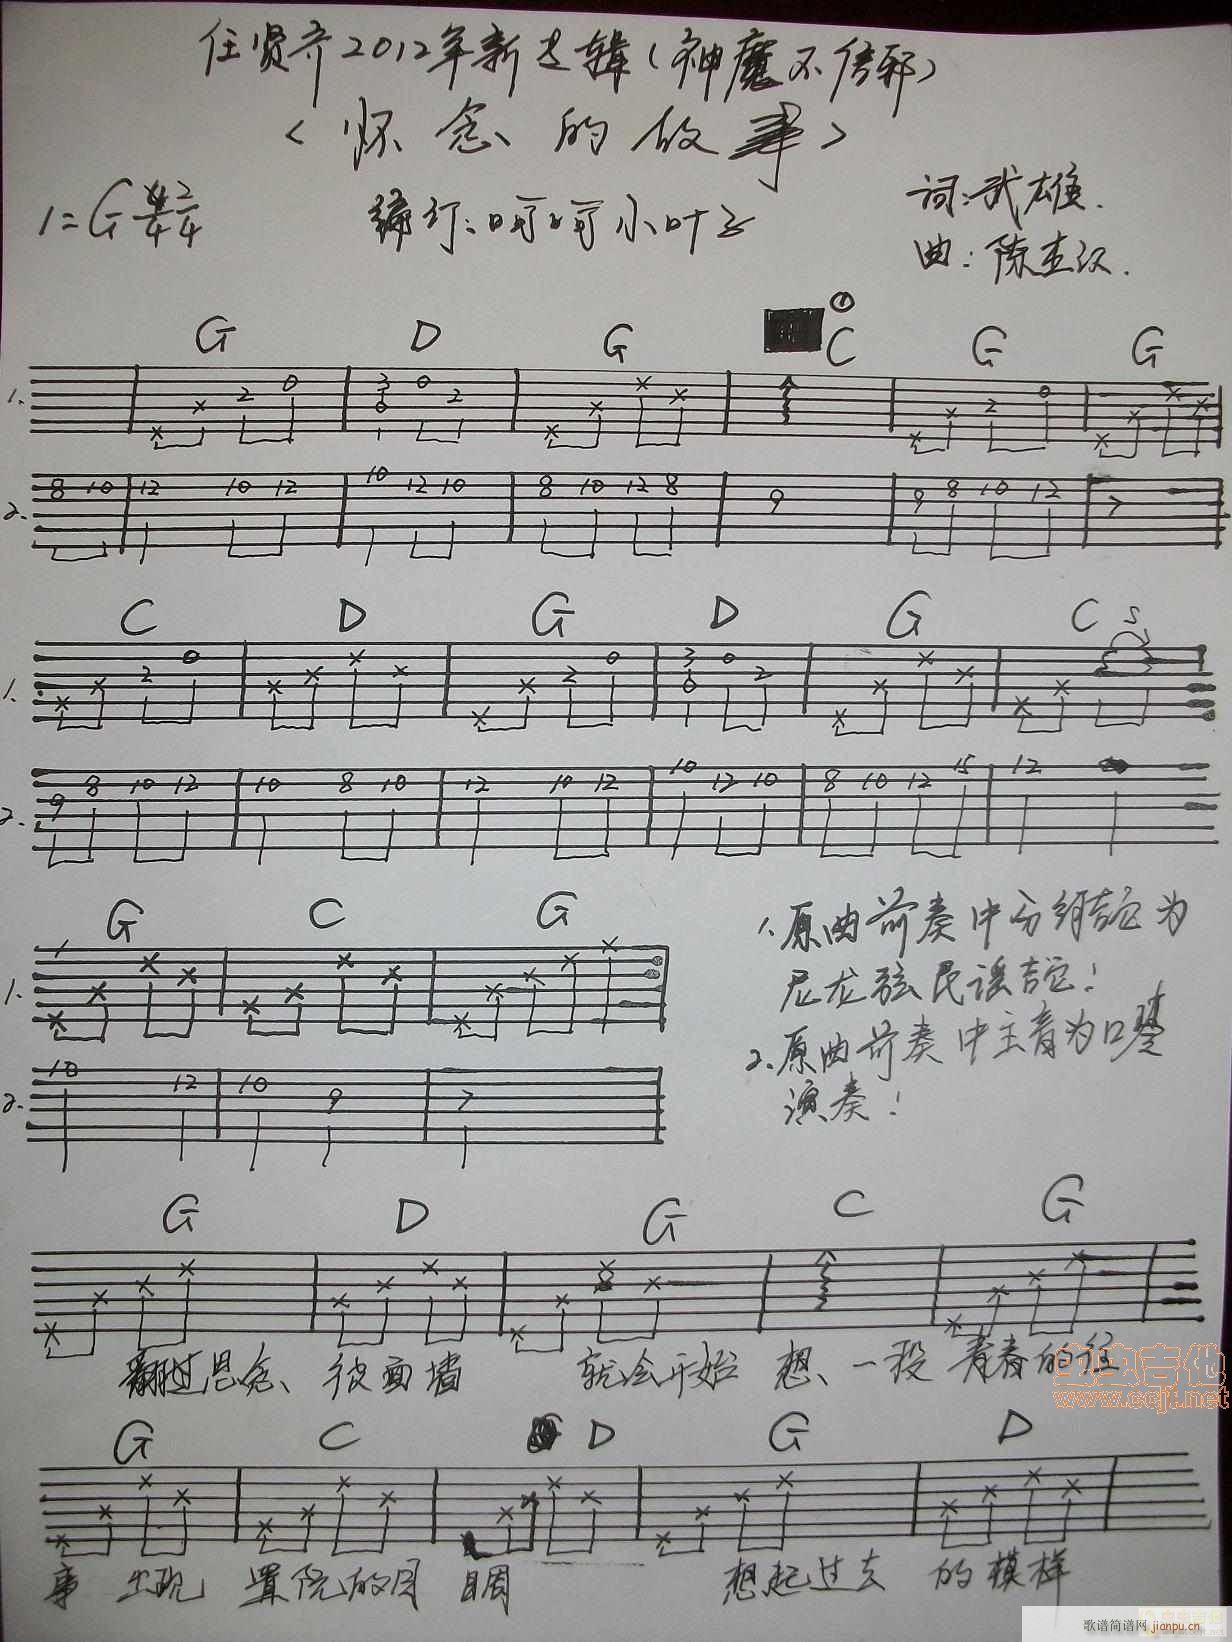 任贤齐2012年新专辑(神魔不信邪)
<怀念的故事>
1=G 4/4 2/4 编订:呵呵小叶子 词:武雄.
曲:陈杰汉.
G D G ① C G G
1.
× × 2 0 3 0 0 2 × × × × × × 2 0 × × × ×
2.
8 10 12 10 12 10 12 10 8 10 12 8 9 9 8 10 12 7
C D G D G C S
1.
× × 2 0 × × × × × × 2 0 3 0 0 2 × × × × × ×
2.
9 8 10 12 10 8 10 12 10 12 10 12 10 8 10 12 15 12
G C G
1.
× × × × × × × × × × × × ×
2.
10 12 10 9 7
1.原曲前奏中分解吉它为
尼龙弦民谣吉它!
2.原曲前奏中主音为口琴
演奏!
G D G C G
× × × × × × × × × × × × × × × ×
翻过思念 彼面墙 就会开始 想 一段 青春的往
虫虫吉他
www.ccjt.net
G C D G D
× × × × × × × × × × × × × × × × × × ×
事 出现 置阮的目 睭 想起过去 的模样
歌谱简谱网 jianpu.cn